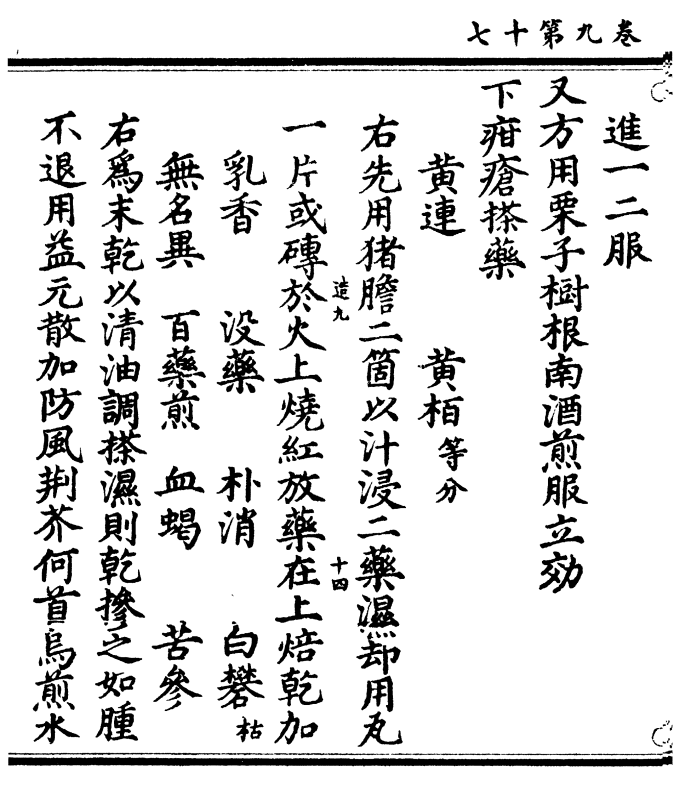 卷九第十七
進一二服
又方用栗子樹根南酒煎服立効
下疳瘡搽藥
黄連　黄栢等分
右先用猪膽二箇以汁浸二藥濕却用瓦
造九　十四
一片或磚於火上燒紅放藥在上焙乾加
乳香　没藥　朴消　白礬枯
無名異　百藥煎　血蝎　苦參
右爲末乾以清油調搽濕則乾摻之如腫
不退用益元散加防風荆芥何首烏煎水